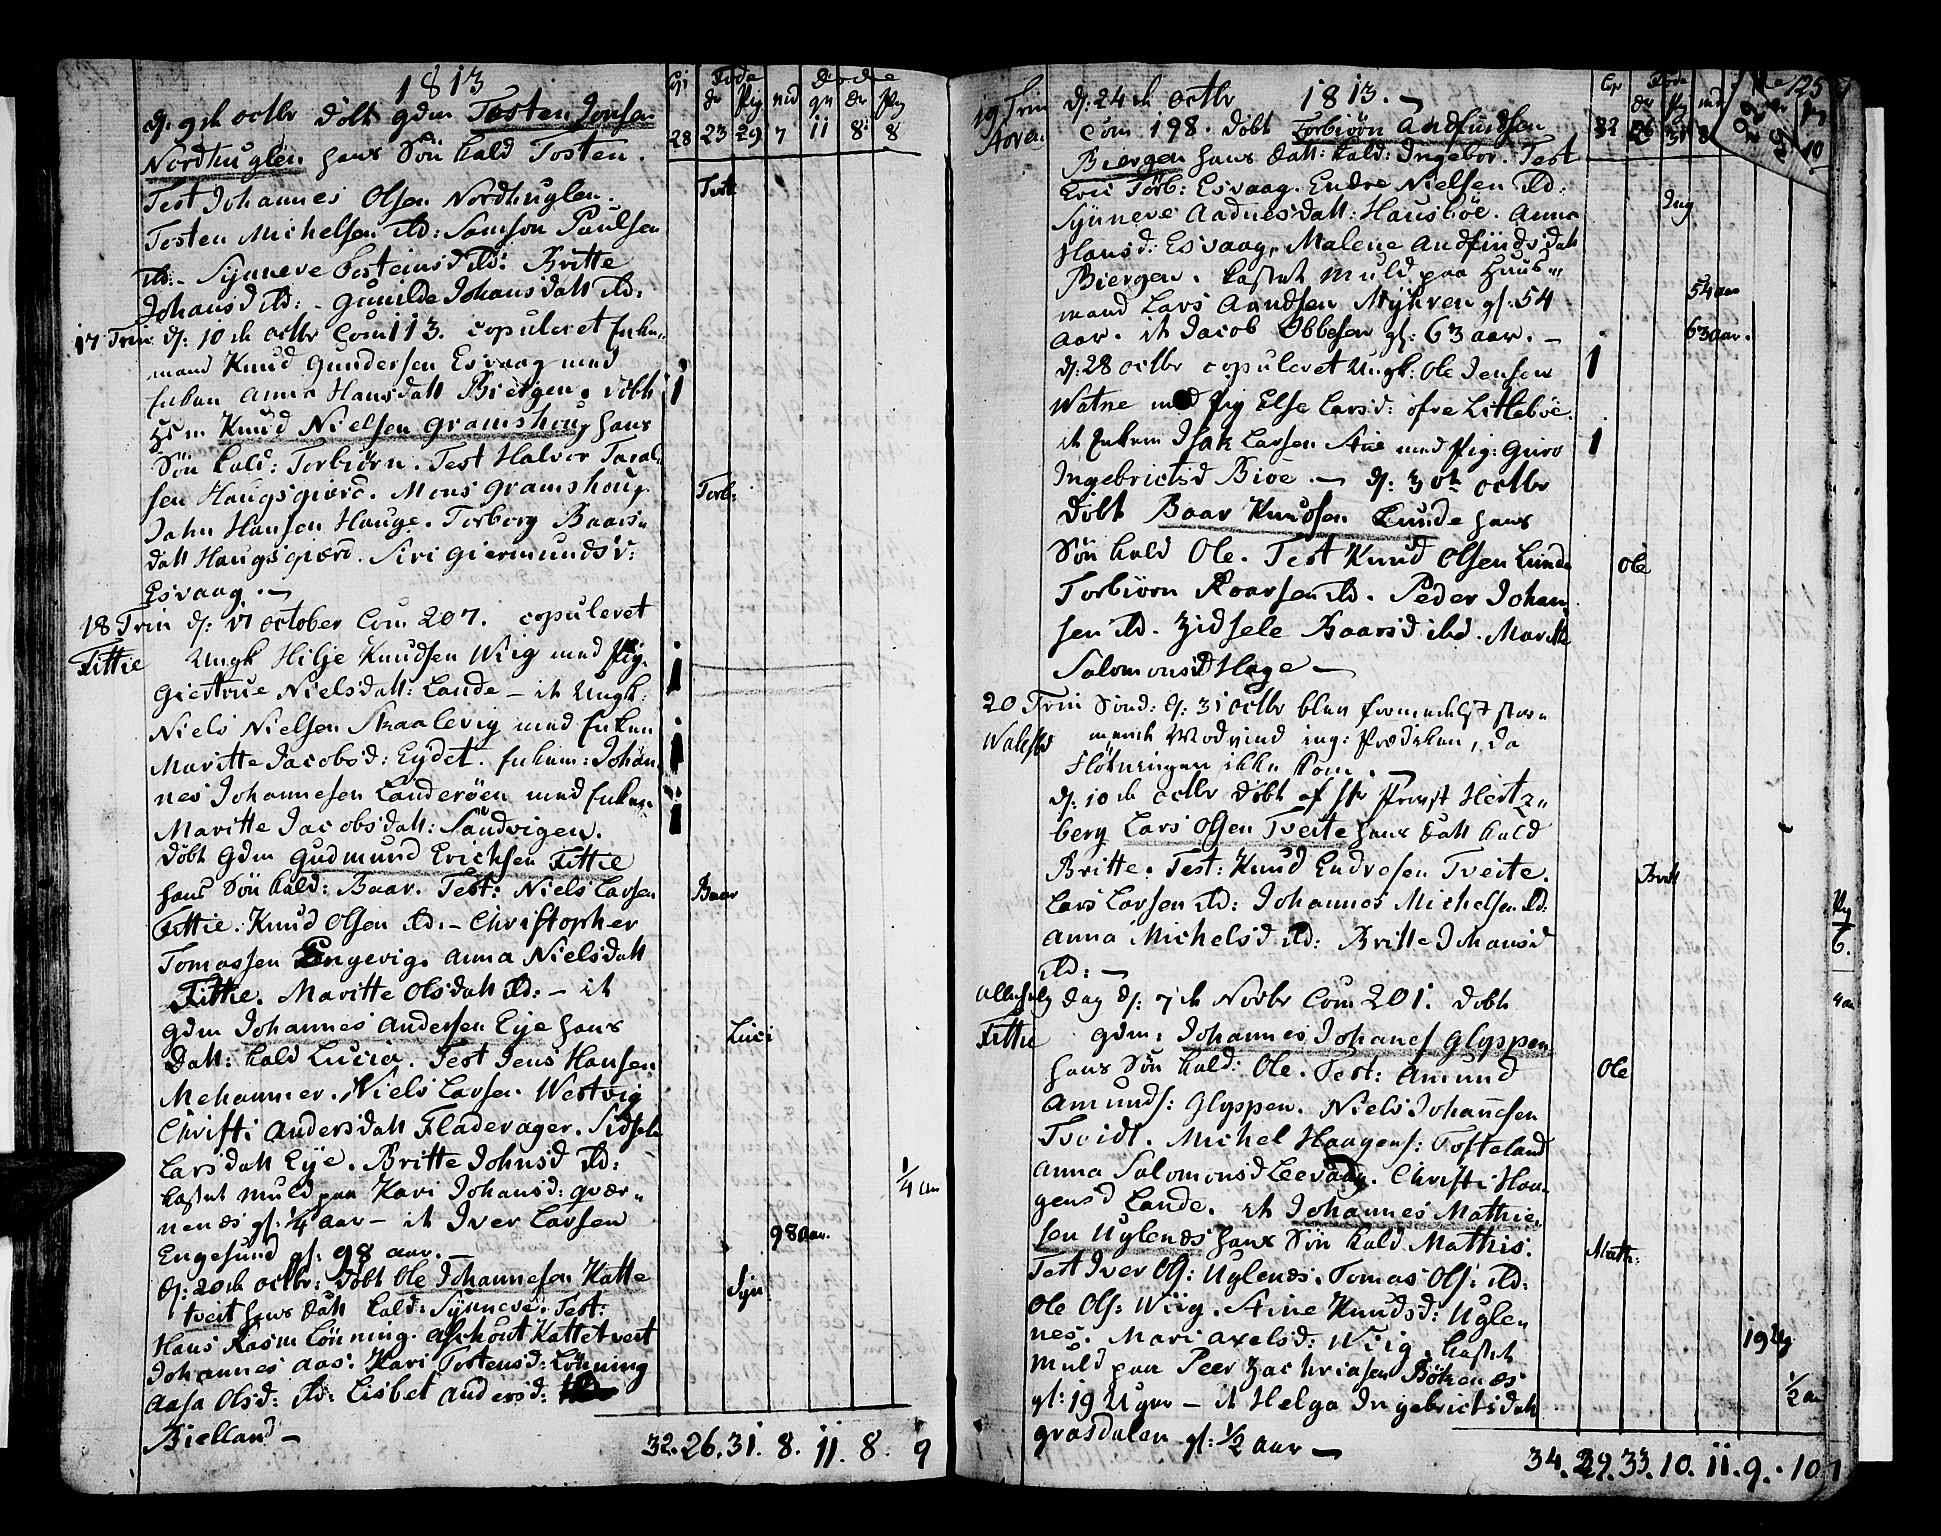 1813
d. 9de octbr döbt gdm Tosten Jonsen
Nordhuglen hans Sön kald Tosten.
Test Johannes Olsen Nordhuglen.
Tosten Michelsen ibd: Samson Paulsen
ibd. - Synneve Tosteinsd ibd: Britte
Johansd ibd: - Gunilde Johansdatt ibd:
17 Trin d: 10de octbr Com 113. copuleret Enke-
mand Knud Gundersen Esvaag med
Enken Anna Hansdatt Biergen. döbt
Hsm Knud Nielsen Gramshoug hans
Sön kald: Torbiörn. Test Halvor Taral-
sen Haugsgierd. Mons Gramshoug
John Hansen Hauge. Torborg Baars-
datt Haugsgierd. Siri Giermundsd:
Esvaag. -
18 Trin d: 17 october Com 207. copuleret
Fittie Ungk Hilje Knudsen Wiig med Pig.
Giertrue Nielsdatt: Lande - it Ungk:
Niels Nielsen Skaalevig med Enken
Maritte Jacobsd: Eydet. Enkem: Johan-
nes Johannesen Landeröen med Enken
Maritte Jacobsdatt: Sandvigen.
döbt Gdm Gudmund Erichsen Fittie
hans Sön kald: Baar. Test: Niels Larsen
Fittie. Knud Olsen ibd. - Christopher
Tomassen Engevig. Anna Nielsdatt
Fittie. Maritte Olsdatt ibd: - it
gdm Johannes Andersen Eije hans
Datt: kald Lucia. Test Jens Hansen
Mehammer. Niels Larsen Westvig
Christi Andersdatt Fladerager. Sidsele
Larsdatt Eije. Britte Johnsd ibd:
kastet Muld paa Kari Johansd: qvær-
nenæs gl: 1/4 aar - it Iver Larsen
Engesund gl: 98 aar. -
d: 20de octbr: döbt Ole Johannesen Katte
tveit hans datt kald: Synneve. Test:
Hans Rasm Lönning. Afschout Kattetveit
Johannes Aas: Kari Tostensd: Lönning
Aasa Olsd: ibd: Lisbet Andersd:
Bielland -
28 23 29 7 11 8 8
Tost
1
Torb:
1
1
1
Baar
Luci
1/4 aar
98 aar.
Syn:
32. 26. 31. 8. 11. 8. 9
19 Trin d: 24de octbr 1813. -
125
Com 198. döbt Torbiörn Andfindsen
Biergen hans datt: kald: Ingebor. Test
Eric Torb: Esvaag. Endre Nielsen ibd:
Synneve Aadnesdatt: Hausböe. Anna
Hansd: Esvaag, Malene Andfindsdatt
Biergen. kastet Muld paa Huus-
mand Lars Amundsen Myhren gl. 54
aar. it Jacob Ebbesen gl: 63 aar. -
d: 28 octbr copuleret Ungk: Ole Jensen
Watne med Pig Else Larsd: öfre Litleböe.
it Enkem Isak Larsen Stue med Pig: Guro
Ingebrictsd Biöe. - d: 30te octbr
döbt Baar Knudsen Lunde hans
Sön kald Ole. Test Knud Olsen Lunde
Torbiörn Roarsen ibd. Peder Johan-
sen ibd. Zidsele Baarsd ibd. Maritte
Salomonsd Hage -
20 Trin Sönd: d: 31 octbr blev formedelst storm
mende Modvind ing: Prædiken, da
Flötningen ikke kom. -
d: 10de octbr döbt af Hr Provst Hertz-
berg Lars Olsen Tveite hans datt kald
Britte. Test: Knud Endresen Tveite.
Lars Larsen ibd: Johannes Michelsen ibd:
Anna Michelsd ibd: Britte Johansd
ibd: -
Allehelg Dag d: 7de Novbr Com 201. döbt
Fittie gdm: Johannes Johanes Glyppen
hans Sön kald: Ole. Test: Amund
Amunds: Glyppen. Niels Johannesen
Tveidt. Michel Haagens: Tofteland
Anna Salomonsd Leevaag. Christi Haa-
gensd Lande. it Johannes Mathie-
sen Uglenæs hans Sön kald Mathis.
Test Iver Ols: Uglenæs. Tomas Ols: ibd:
Ole Ols: Wiig. Stine Knudsd: Uglen
nes. Mari Axelsd: Wiig. kastet
Muld paa Peer Zachriasen Böhenæs
gl: 19 Uger - it Helga Ingebrictsdatt
grosdalen gl: 1/2 aar -
Ing
54 aar
63 aar.
1
1
Ole
Britt
Ole
Math:
19 Ug
1/2 aar
34. 29. 33. 10. 11. 9. 10